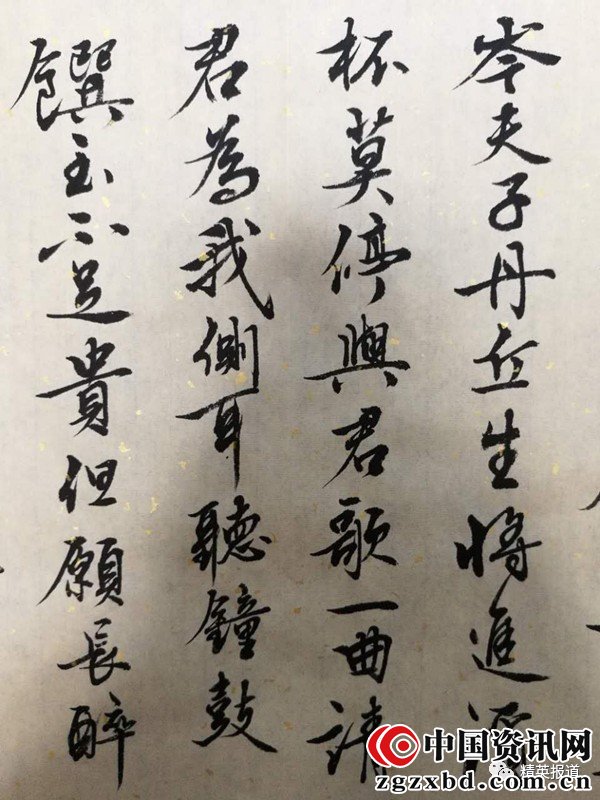 岑夫子丹丘生將進酒
杯莫停與君歌一曲請
君為我側耳聽鐘鼓
饌玉不足貴但願長醉
中国资讯网
zgzxbd.com.cn
精英报道